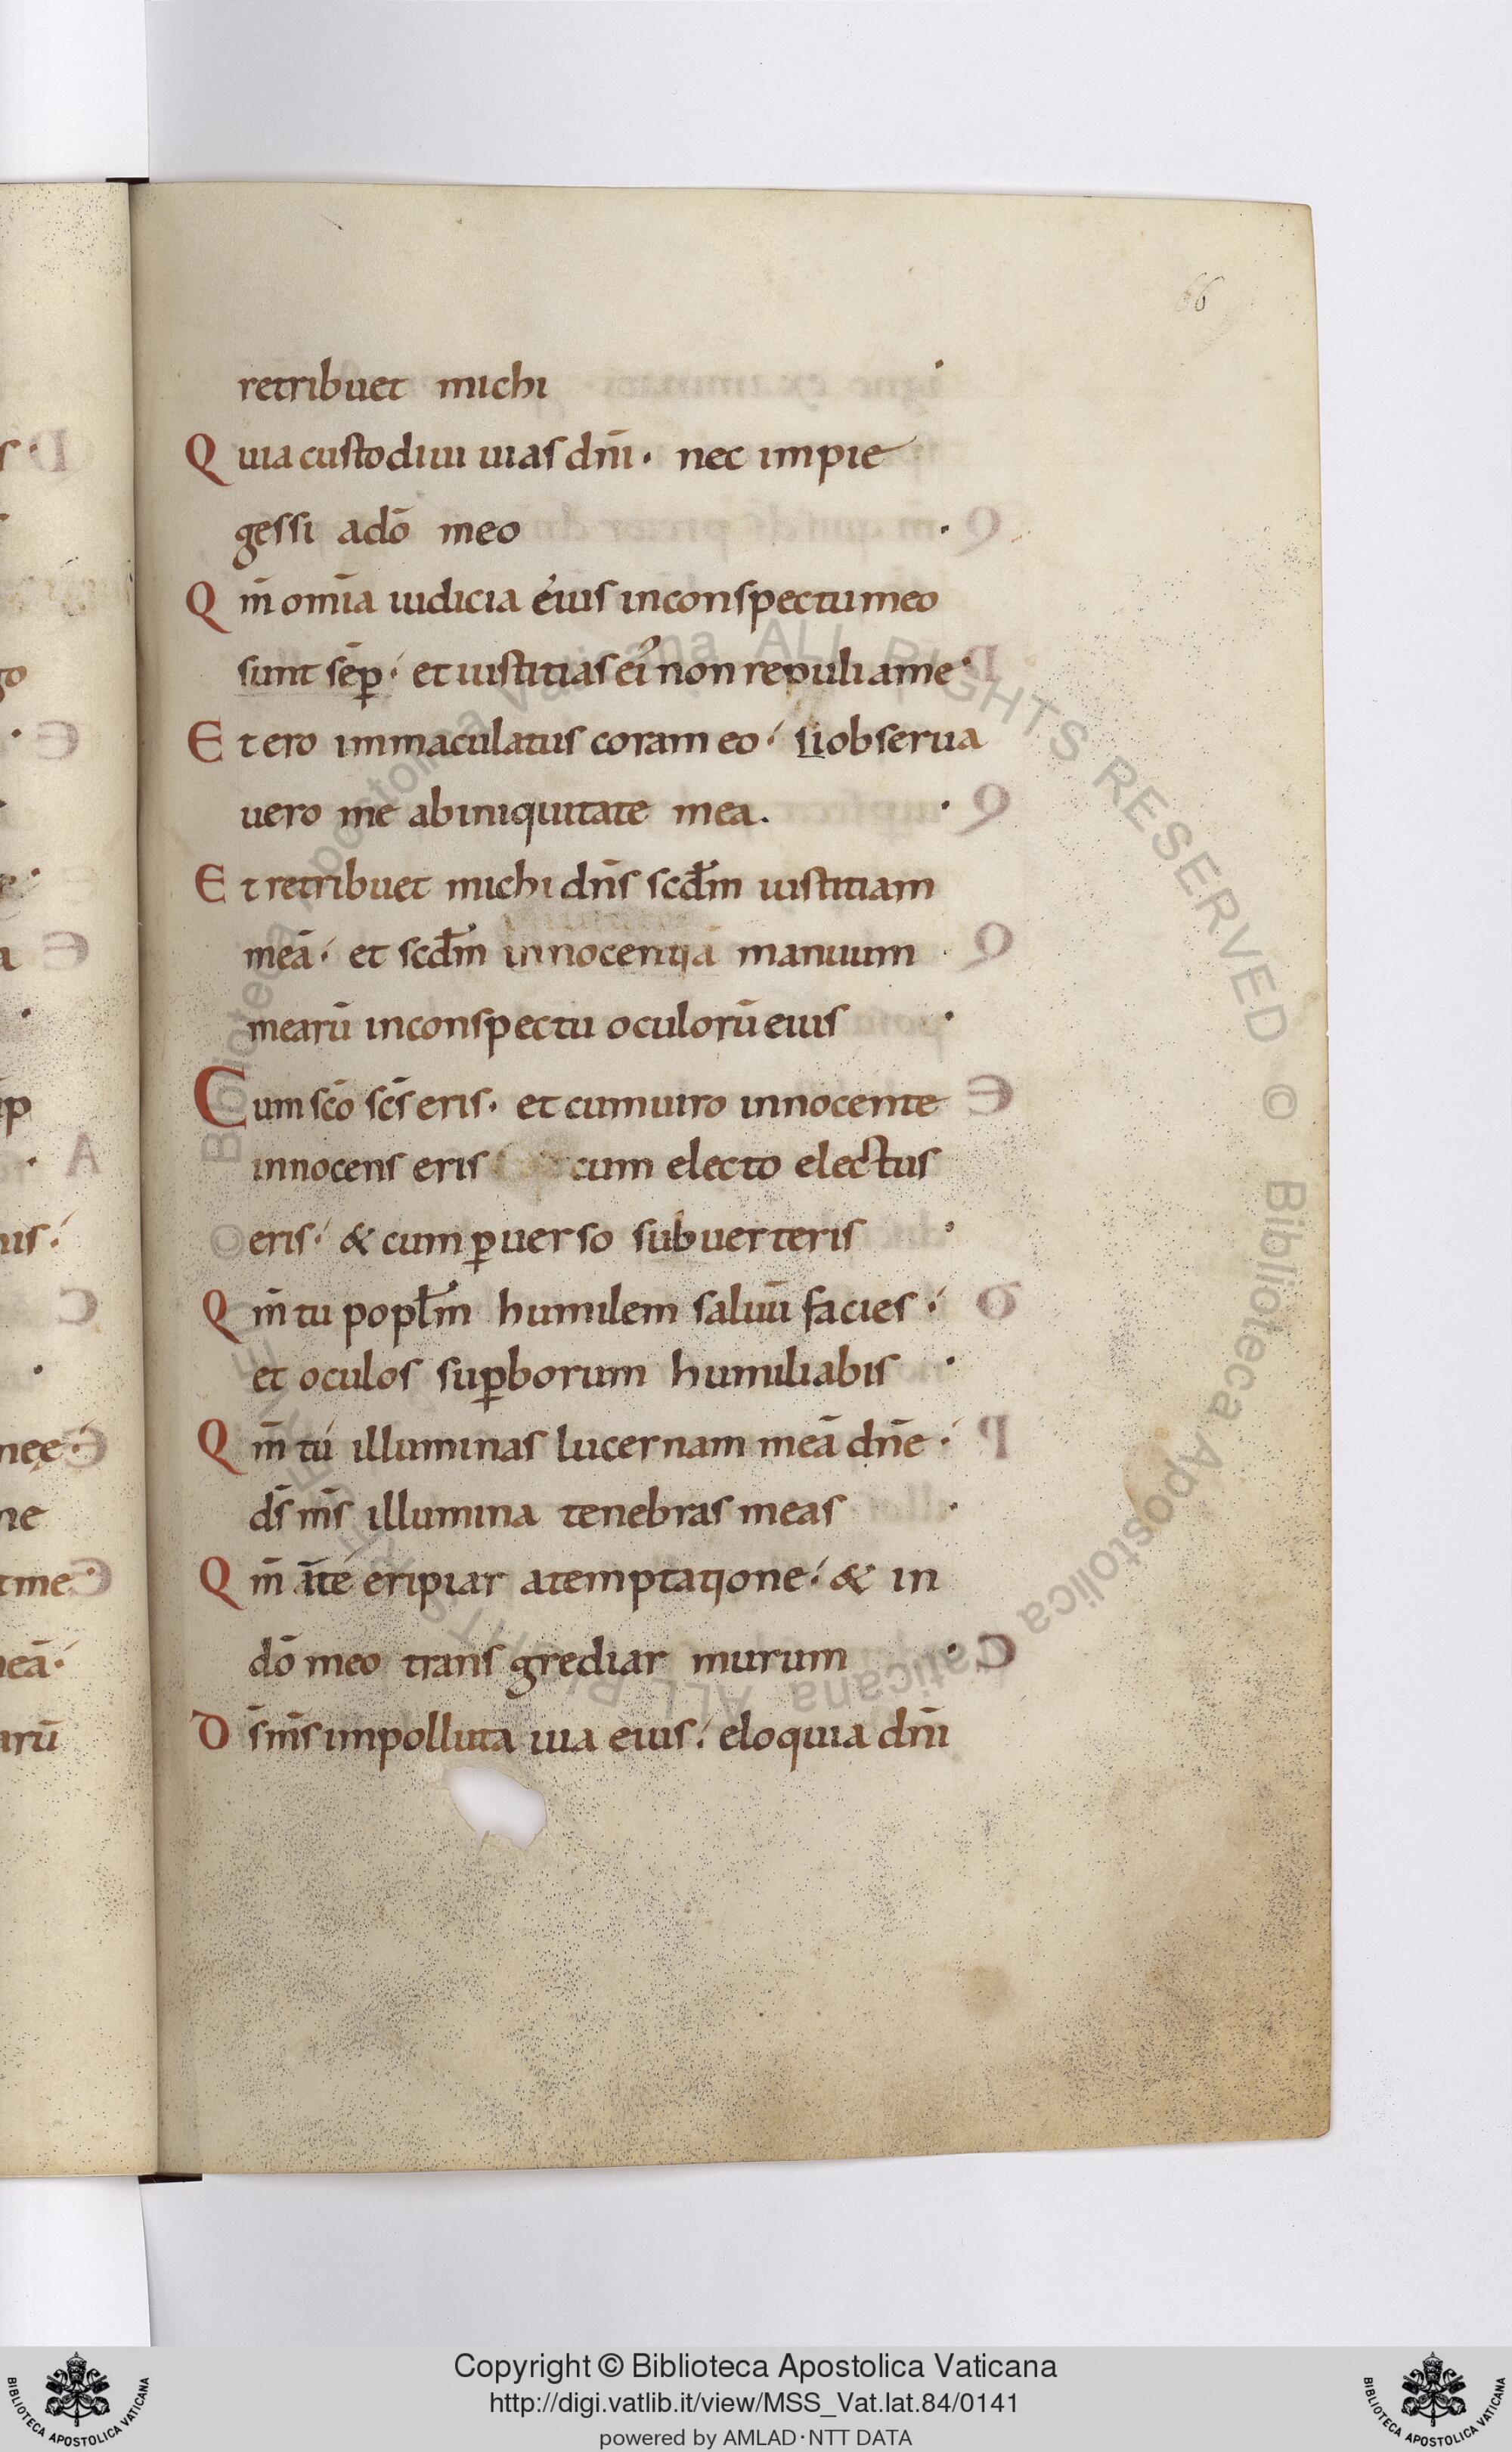 66
retribuet michi ·
Quia custodiui uias dn̄i · nec impie
gessi adō meo ·
Qm̄ om̄ia iudicia eius inconspectu meo
sunt sēꝑ · et iustitias ei᾽ non repuli ame ·
Et ero immaculatus coram eo · si obserua
uero me abiniquitate mea . ·
Et retribuet michi dn̄s scd̄m iustitiam
meā · et scd̄m innocentiā manuum
mearū inconspectu oculorū eius ·
Cum sc̄o sc̄s eris · et cumuiro innocente
innocens eris cum electo electus
eris · & cum ꝑuerso subuerteris ·
Qm̄ tu popl̄m humilem saluū facies ·
et oculos suꝑborum humiliabis ·
Qm̄ tu illuminas lucernam meā dn̄e ·
ds̄ ms̄ illumina tenebras meas ·
Qm̄ īte eripiar atemptatione · & in
dō meo transgrediar murum ·
Ds̄ ms̄ impolluta uia eius · eloquia dn̄i
Biblioteca Apostolica Vaticana ALL RIGHTS RESERVED © Biblioteca Apostolica Vaticana ALL RIGHTS RESERVED ©
Copyright © Biblioteca Apostolica Vaticana
http://digi.vatlib.it/view/MSS_Vat.lat.84/0141
powered by AMLAD·NTT DATA
BIBLIOTECA APOSTOLICA VATICANA
BIBLIOTECA APOSTOLICA VATICANA